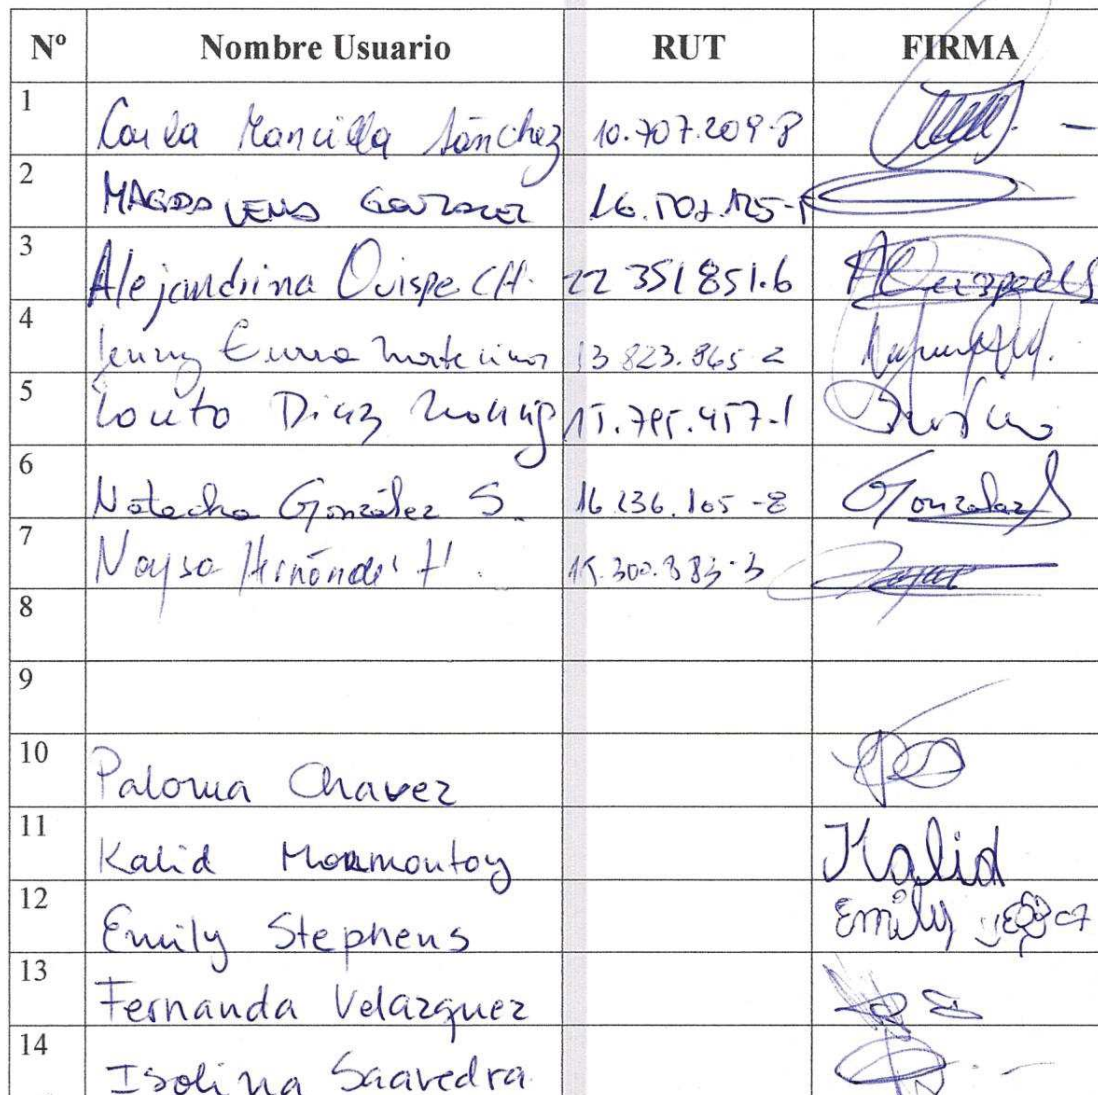 Nº Nombre Usuario RUT FIRMA
1 Carla Mancilla Sánchez 10.707.209-8
2 MAGDALENA GONZALEZ
3 Alejandrina Quispe CH. 22 351 851.6
4 Jenny 13 823.865-2
5 Díaz 15.795.457-1
6 Natacha González S. 16 236.105-8 González S
7 Naysa Hernández H. 15.300.383-3
8
9
10 Paloma Chavez
11 Kalid Mormontoy Kalid
12 Emily Stephens Emily
13 Fernanda Velazquez
14 Isolina Saavedra